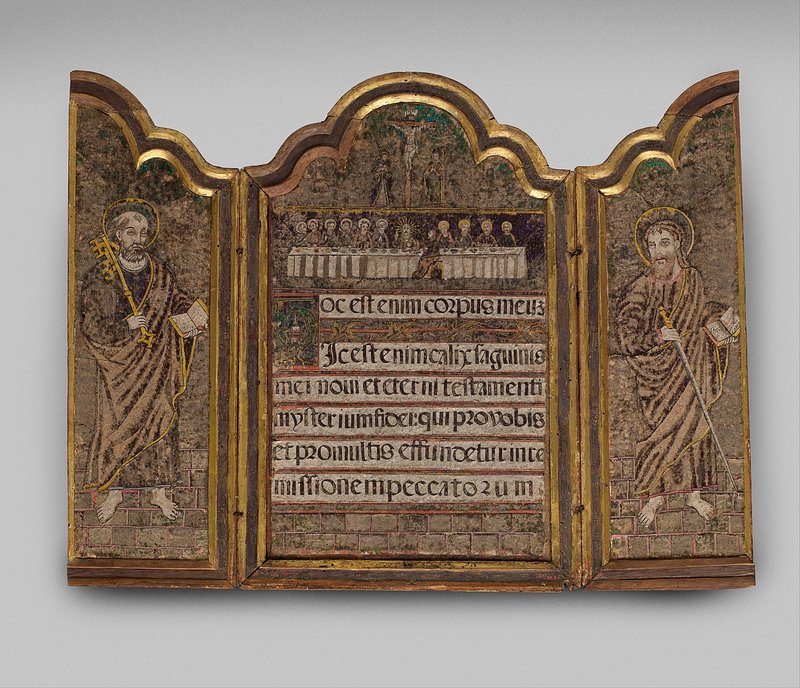 oc est enim corpus meuz
Ic est enim calix saguinis
mei noui et eterni testamenti
mysterium fidei: qui pro vobis
et pro multis effundetur in re
missionem peccatorum: